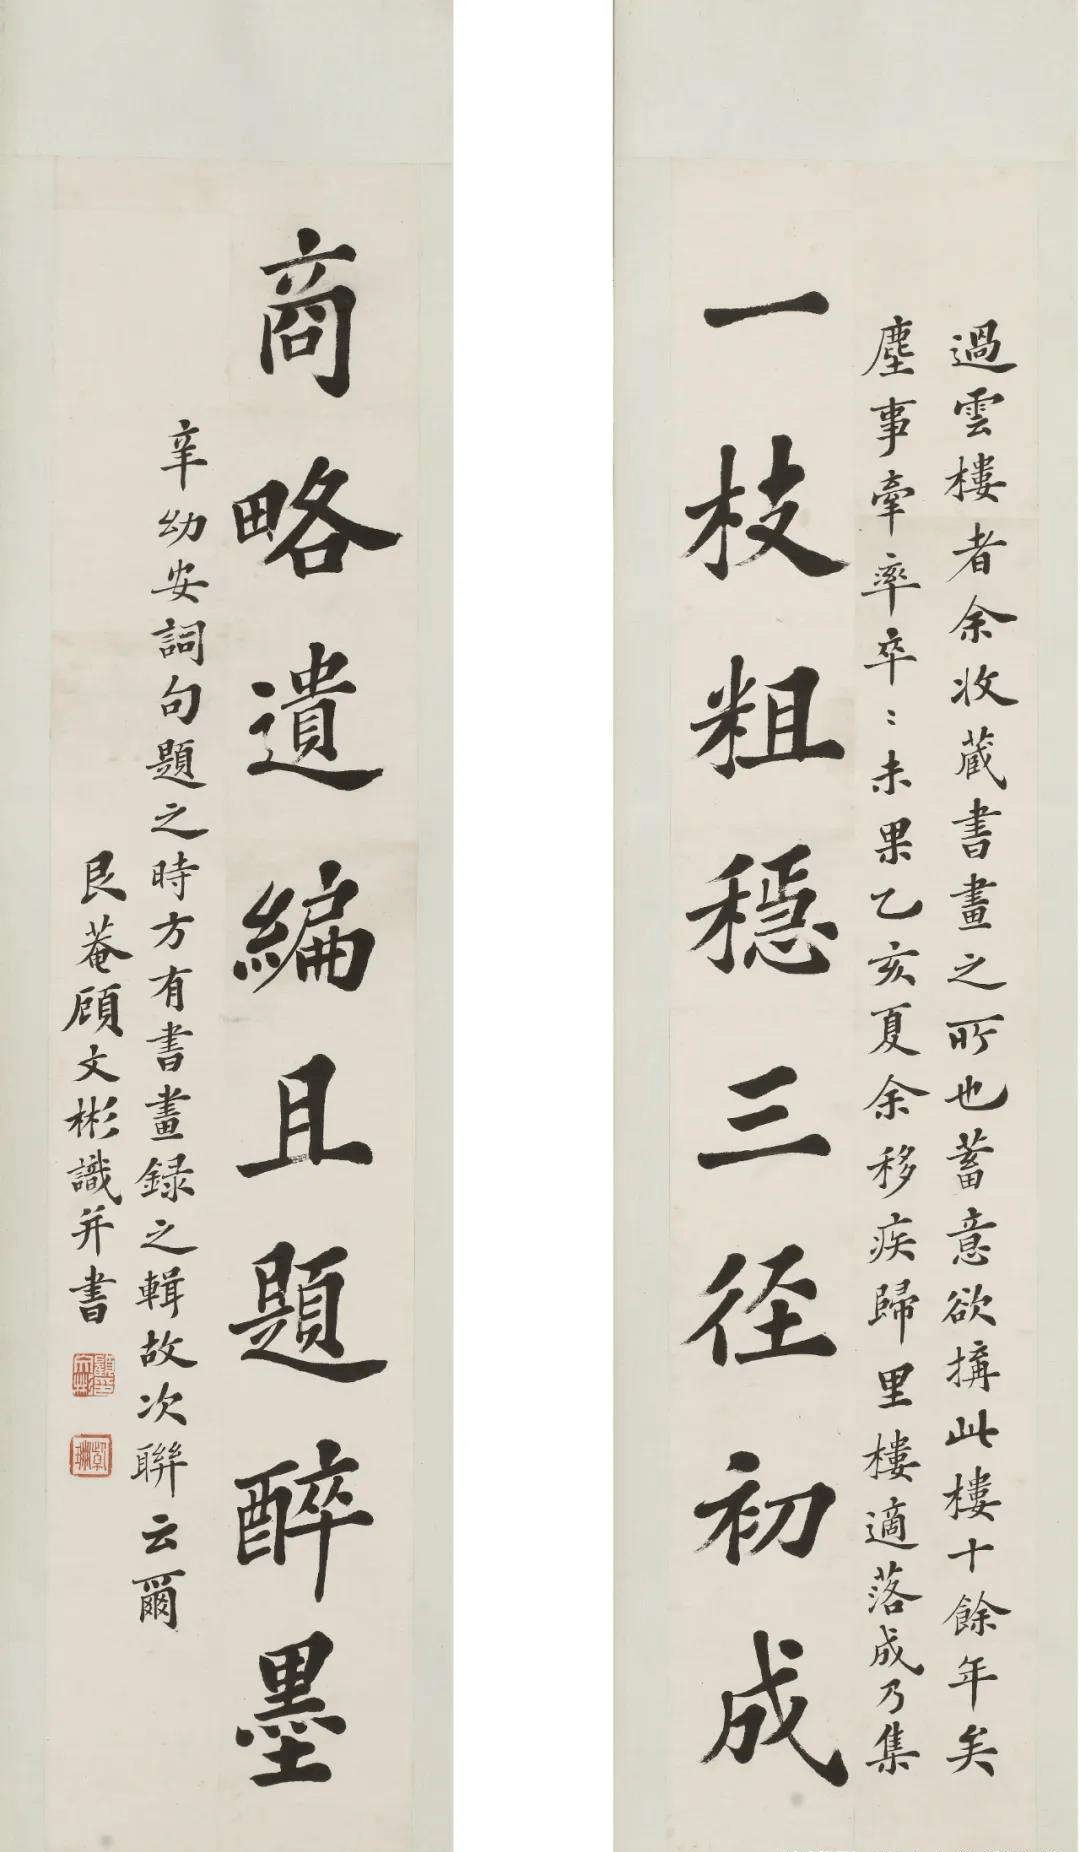 過雲樓者余收蔵書畫之所也蓄意欲搆此樓十餘年矣
塵事牽率卒〻未果乙亥夏余移疾歸里樓適落成乃集
一枝粗穩三径初成
商略遺編且題醉墨
辛幼安詞句題之時方有書畫録之輯故次聯云爾
艮菴顧文彬識并書